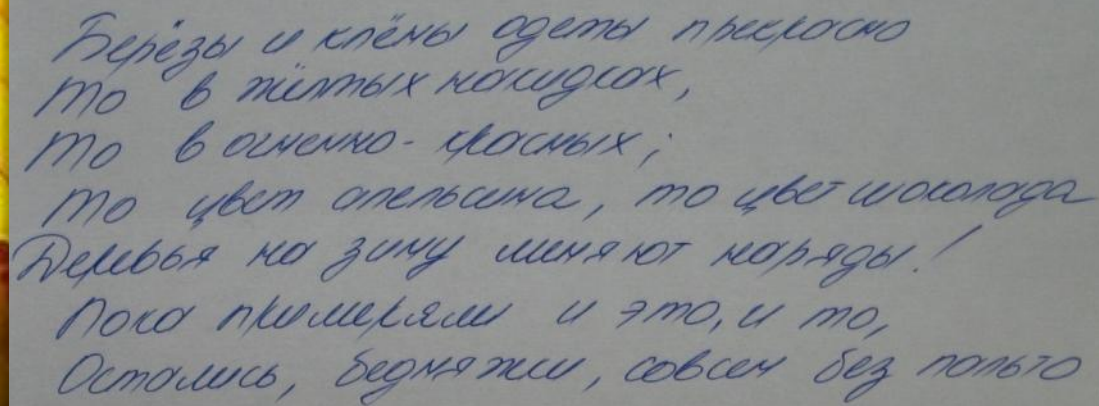 Берёзы и клёны одеты прекрасно
То в жёлтых накидках,
То в огненно-красных;
То цвет апельсина, то цвет шоколада
Деревья на зиму меняют наряды!
Пока примеряли и это, и то,
Остались, бедняжки, совсем без пальто